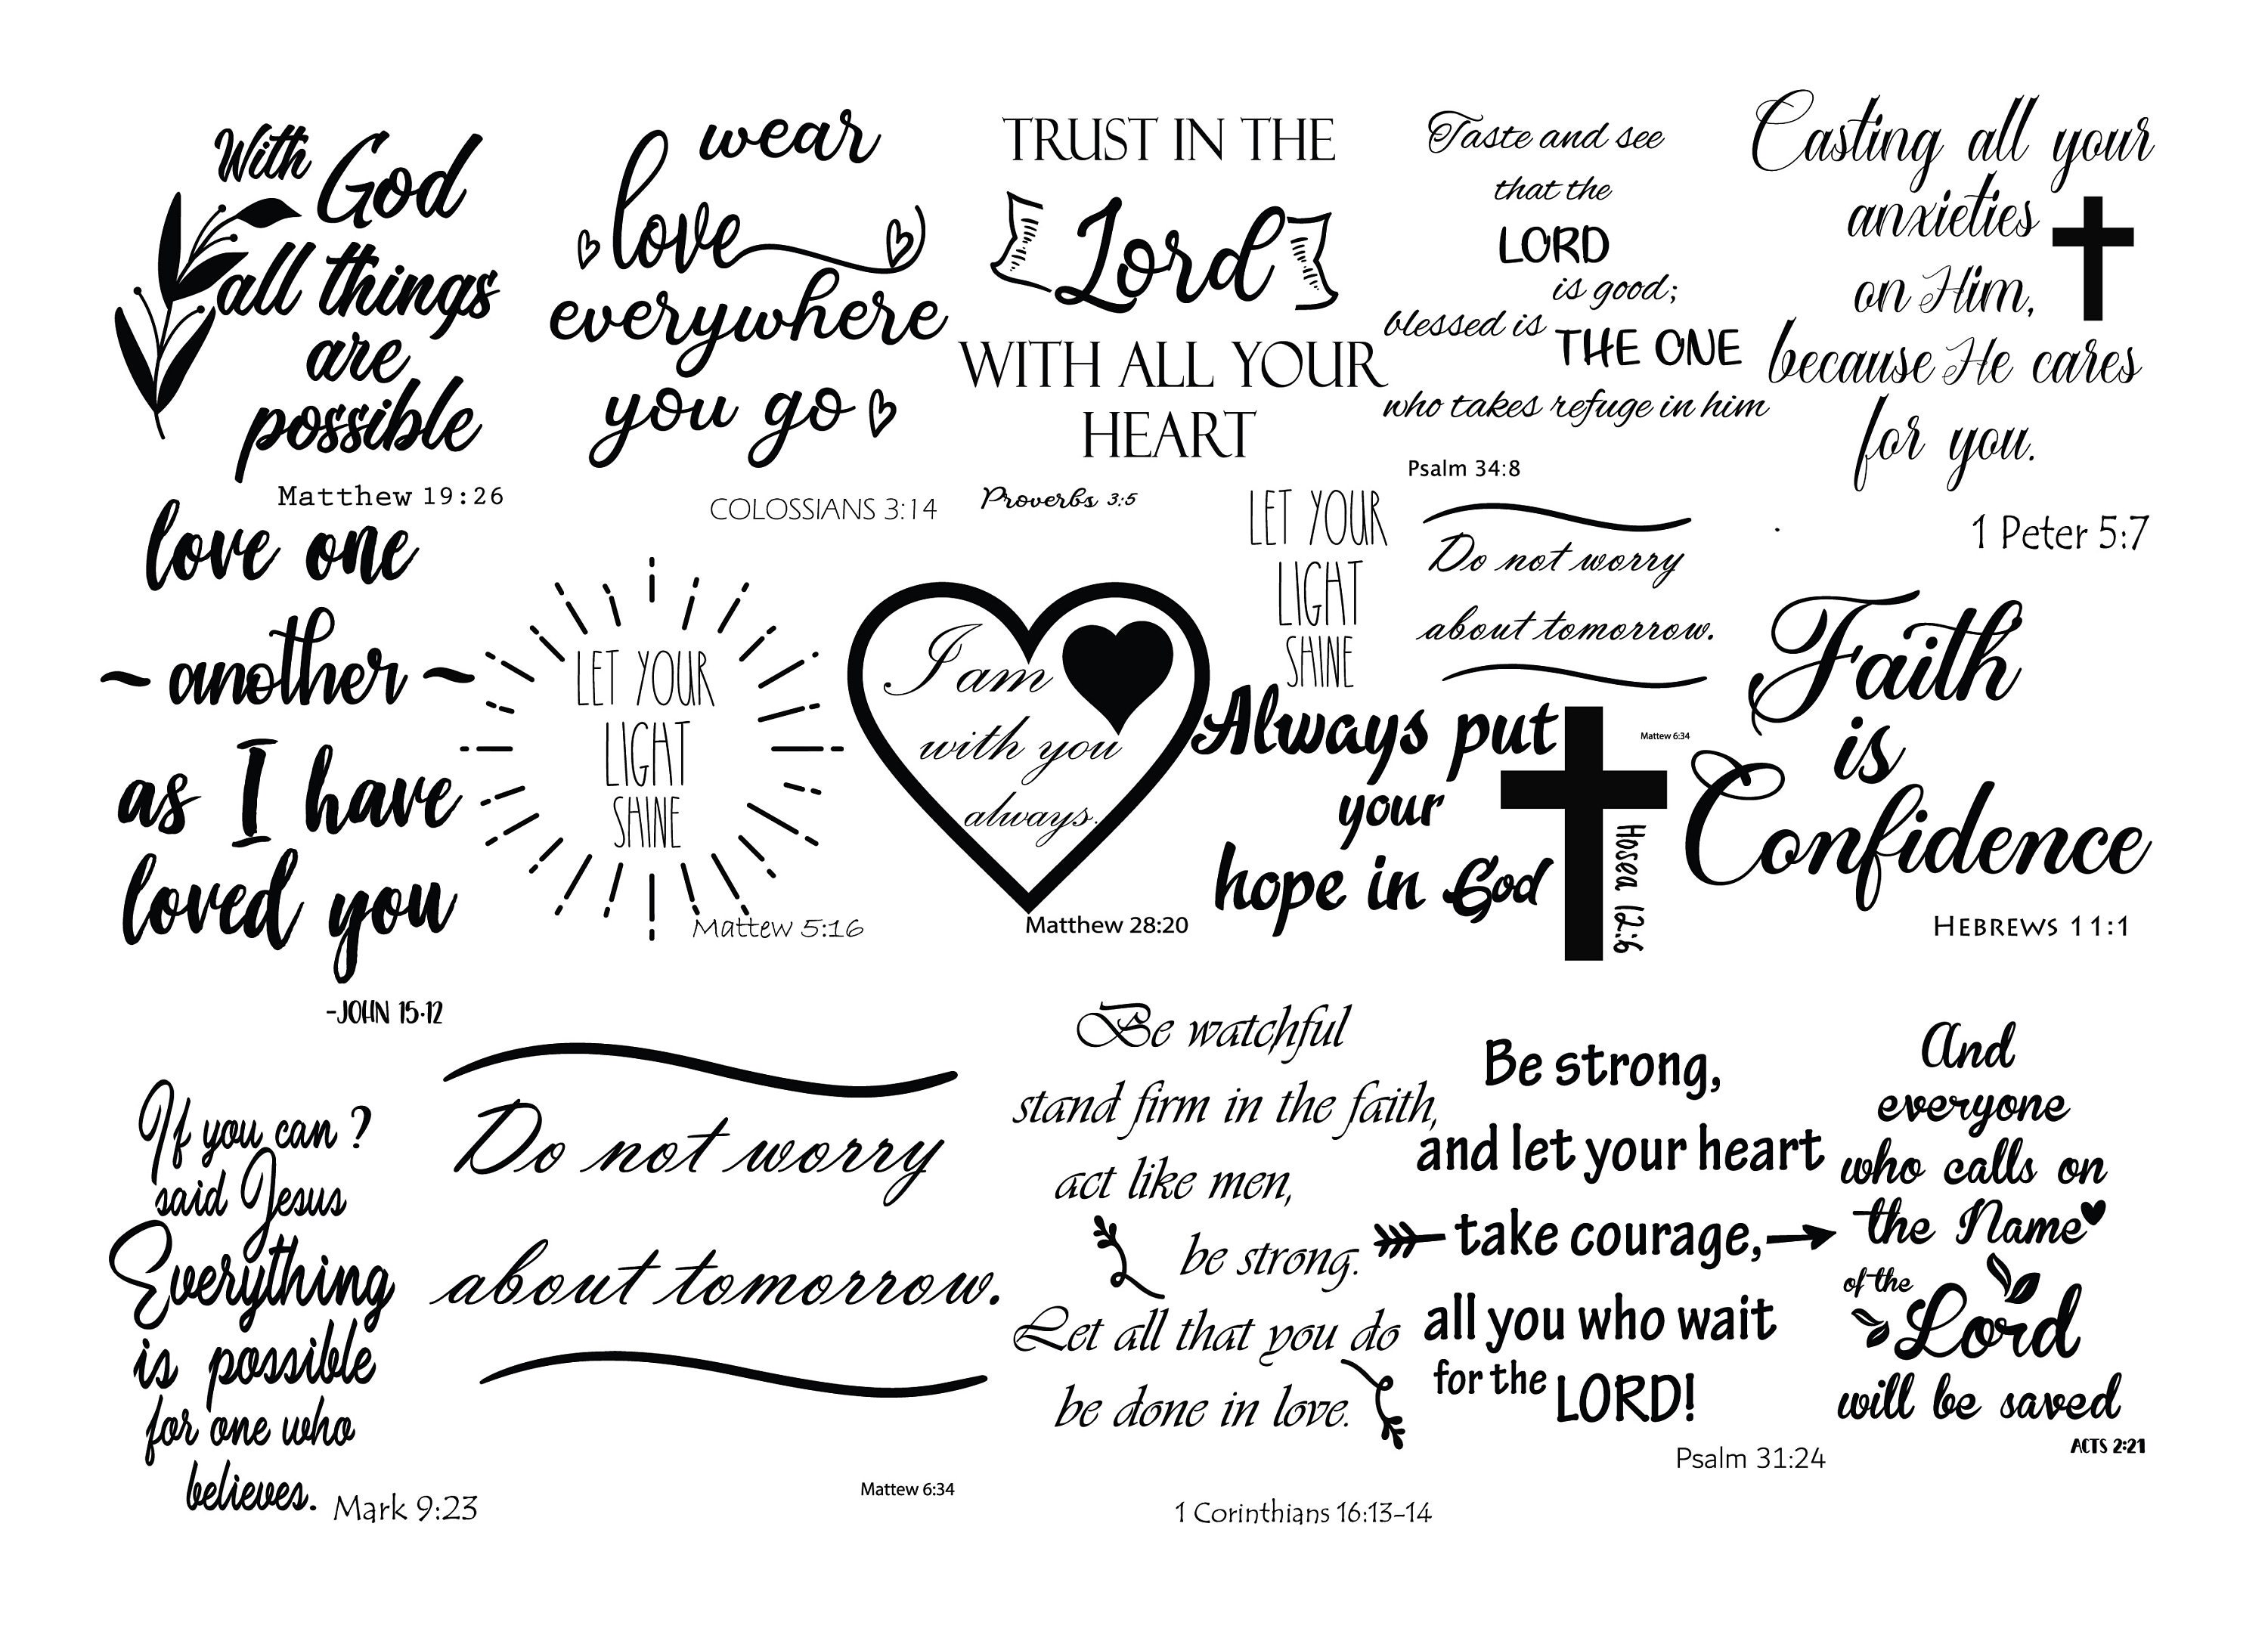 With God
all things
are
possible
Matthew 19:26
wear
love
everywhere
you go
COLOSSIANS 3:14
TRUST IN THE
Lord
WITH ALL YOUR
HEART
Proverbs 3:5
Taste and see
that the
LORD
is good;
blessed is THE ONE
who takes refuge in him
Psalm 34:8
Casting all your
anxieties
on Him,
because He cares
for you.
1 Peter 5:7
love one
~ another ~
as I have
loved you
-JOHN 15·12
LET YOUR
LIGHT
SHINE
Mattew 5:16
I am
with you
always.
Matthew 28:20
LET YOUR
LIGHT
SHINE
Do not worry
about tomorrow.
Mattew 6:34
Always put
your
hope in God
Hosea 12:6
Faith
is
Confidence
HEBREWS 11:1
If you can ?
said Jesus
Everything
is possible
for one who
believes.
Mark 9:23
Do not worry
about tomorrow.
Mattew 6:34
Be watchful
stand firm in the faith,
act like men,
be strong.
Let all that you do
be done in love.
1 Corinthians 16:13-14
Be strong,
and let your heart
take courage,
all you who wait
for the LORD!
Psalm 31:24
And
everyone
who calls on
the Name
of the
Lord
will be saved
ACTS 2:21